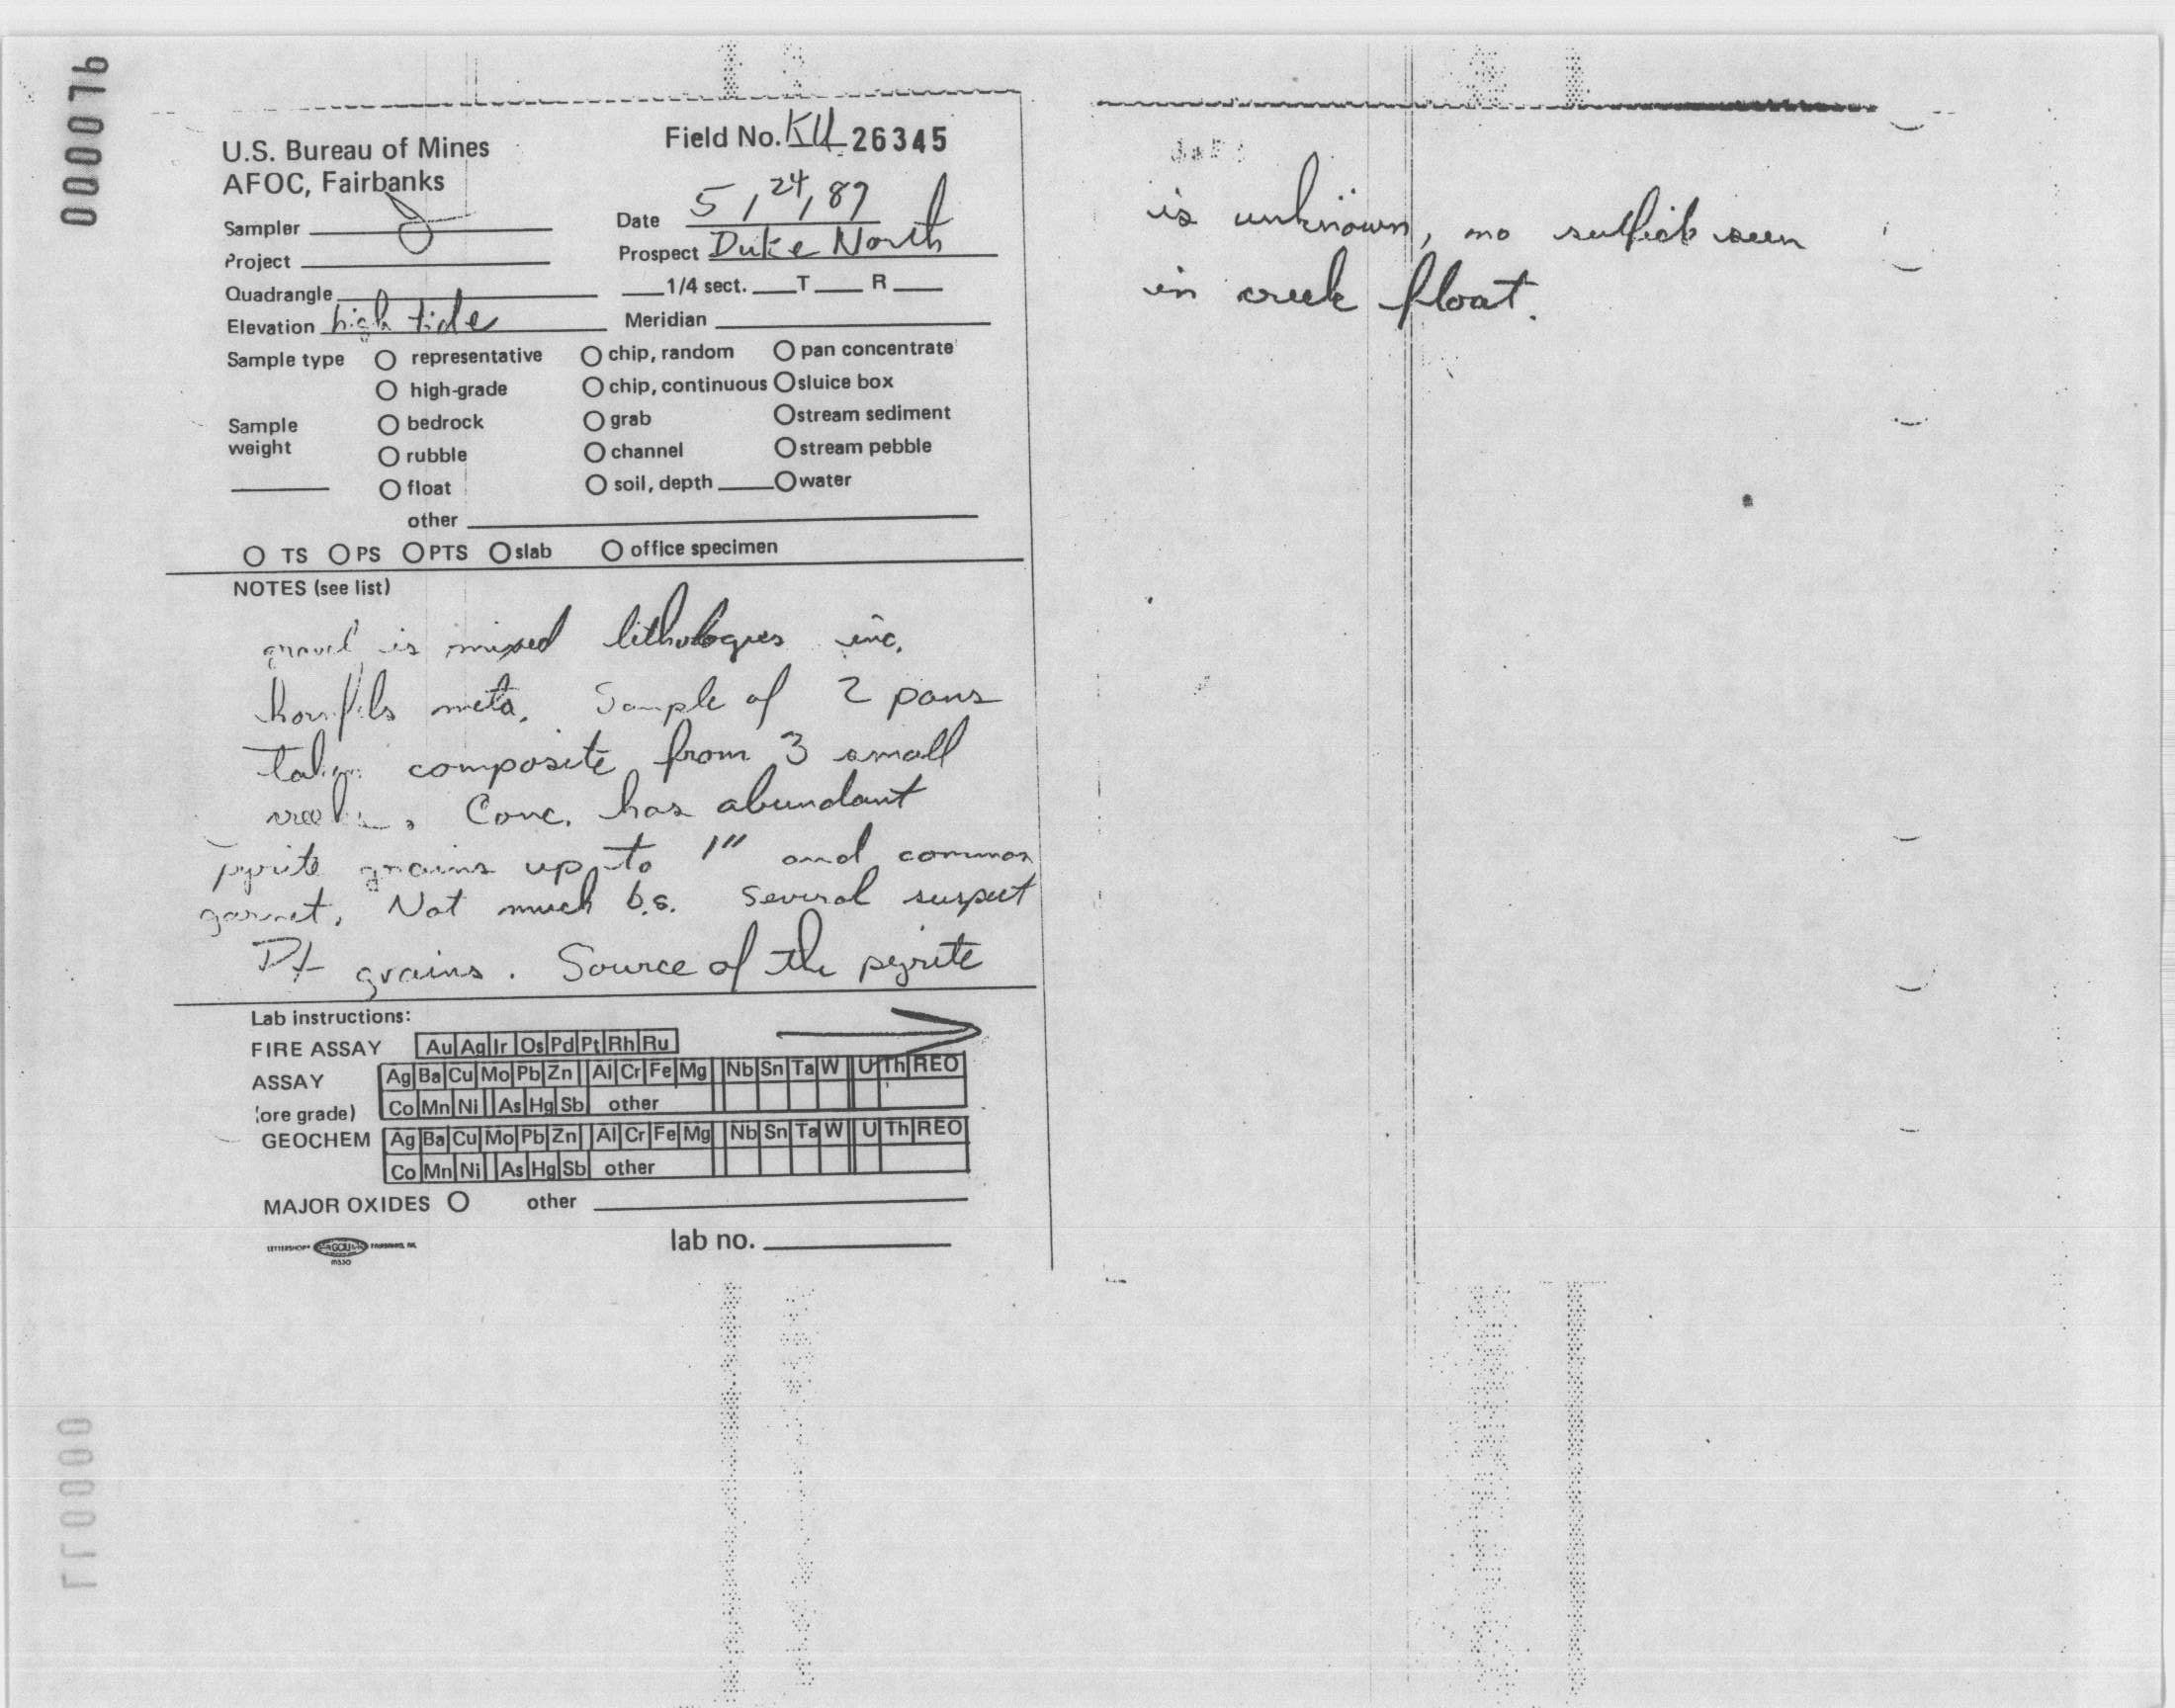 000076
U.S. Bureau of Mines
AFOC, Fairbanks
Field No. KU 26345
Sampler
Date 5/24/87
Project
Prospect Duke North
Quadrangle
1/4 sect. T R
Elevation high tide
Meridian
Sample type O representative O chip, random O pan concentrate
O high-grade O chip, continuous O sluice box
Sample weight O bedrock O grab O stream sediment
O rubble O channel O stream pebble
O float O soil, depth O water
other
O TS O PS O PTS O slab O office specimen
NOTES (see list)
gravel is mixed lithologies inc.
hornfels meta. Sample of 2 pans
taken composite from 3 small
creeks. Conc. has abundant
pyrite grains up to 1" and common
garnet. Not much b.s. Several suspect
Pt grains. Source of the pyrite
Lab instructions:
FIRE ASSAY Au Ag Ir Os Pd Pt Rh Ru
ASSAY Ag Ba Cu Mo Pb Zn Al Cr Fe Mg Nb Sn Ta W U Th REO
(ore grade) Co Mn Ni As Hg Sb other
GEOCHEM Ag Ba Cu Mo Pb Zn Al Cr Fe Mg Nb Sn Ta W U Th REO
Co Mn Ni As Hg Sb other
MAJOR OXIDES O other
lab no.
is unknown, no sulfide seen
in creek float.
000077